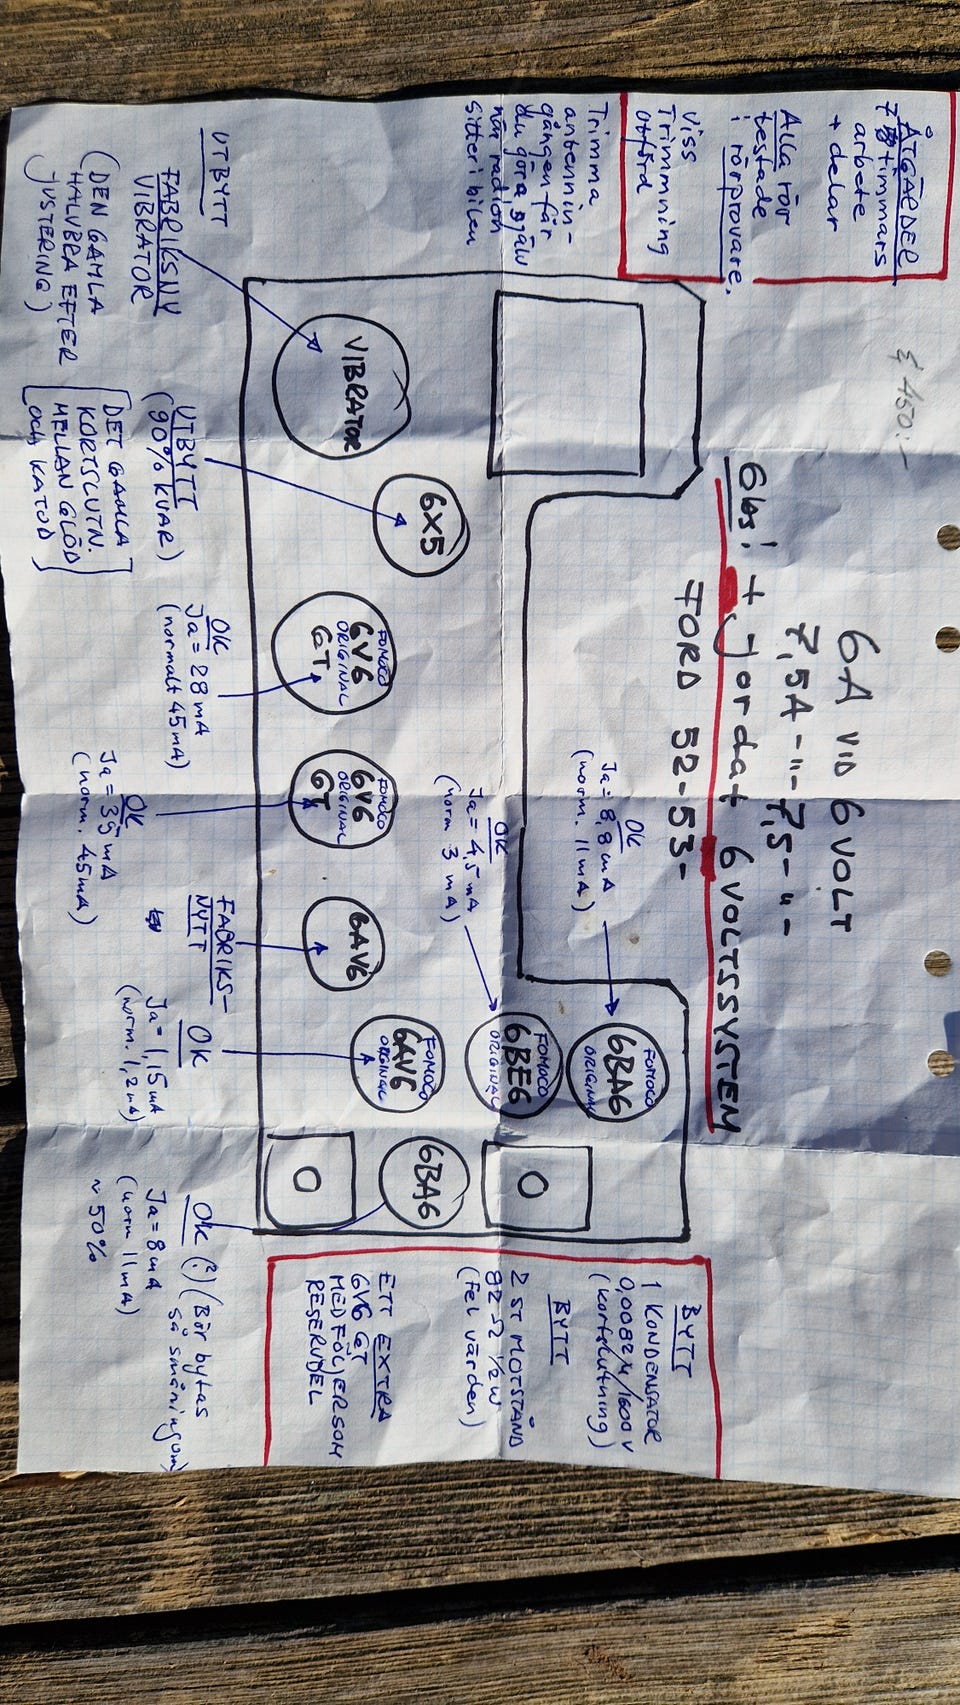 ÅTGÄRDER
7 timmars
arbete
+ delar
Alla rör
testade
i rörprovare.
Viss
Trimmning
utförd
Trimma
antennin-
gången får
du göra själv
när radion
sitter i bilen
£ 450:-
6A VID 6 VOLT
7,5A -"- 7,5 -"-
Obs! + Jordat 6 VOLTSSYSTEM
FORD 52-53-
OK
Ja = 8,8 mA
(norm. 11 mA)
OK
Ja = 4,5 mA
(norm 3 mA)
VIBRATOR
6X5
FOMOCO
6V6
ORIGINAL
GT
FOMOCO
6V6
ORIGINAL
GT
6AV6
FOMOCO
6AV6
ORIGINAL
FOMOCO
6BE6
ORIGINAL
FOMOCO
6BA6
ORIGINAL
6BA6
O
O
UTBYTT
FABRIKSNY
VIBRATOR
(DEN GAMLA
HALVBRA EFTER
JUSTERING)
UTBYTT
(90% KVAR)
[DET GAMLA
KORTSLUTN.
MELLAN GLÖD
OCH KATOD]
OK
Ja = 28 mA
(normalt 45 mA)
OK
Ja = 35 mA
(norm. 45 mA)
FABRIKS-
NYTT
OK
Ja = 1,15 mA
(norm. 1,2 mA)
OK (?) (Bör bytas
så småningom)
Ja = 8 mA
(norm 11 mA)
~ 50%
BYTT
1 KONDENSATOR
0,0082 M/1600 V
(kortslutning)
BYTT
2 ST MOTSTÅND
82 Ω 1/2 W
(Fel värden)
ETT EXTRA
6V6 GT
MEDFÖLJER SOM
RESERVDEL